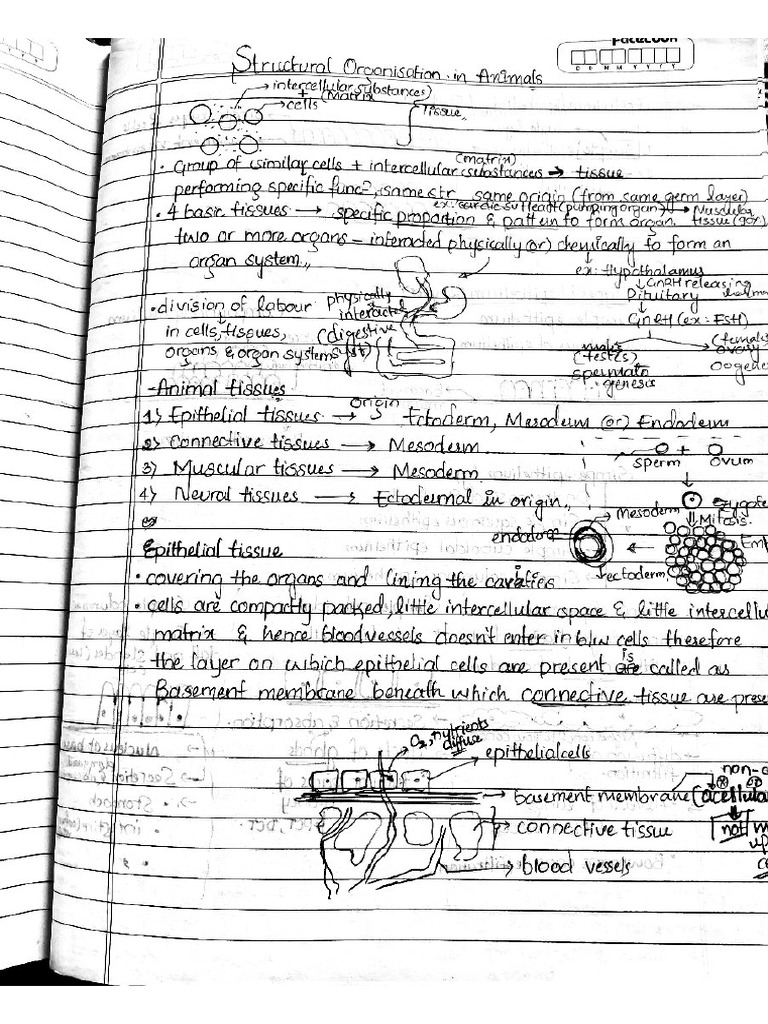 Structural Organisation in Animals
D D M M Y Y Y Y
→ intercellular substances)
+ (Matrix
→ cells
Tissue
(matrix)
• Group of similar cells + intercellular substances → tissue
performing specific func², same str same origin (from same germ layer)
(pumping organ) → Muscular
• 4 basic tissues → specific proportion & pattern to form organ. tissue (90%)
two or more organs – interacted physically (or) chemically to form an
organ system.,
ex: Hypothalamus
↓ GnRH releasing
Pituitary
↓
GnRH (ex: FSH)
males
(testes)
spermato
genesis
(female
ovary
oogene
• division of labour
↓
in cells, tissues,
organs & organ systems
physically
interacted
(digestive
syst)
- Animal tissues
origin
1) Epithelial tissues → Ectoderm, Mesoderm (or) Endoderm
2) Connective tissues → Mesoderm
3) Muscular tissues → Mesoderm
4) Neural tissues → Ectodermal in origin.,
sperm + ovum
↓
zygote
⇓ Mitosis
Em
← Mesoderm
endoderm
→ ectoderm
Epithelial tissue
• covering the organs and lining the cavities
• cells are compactly packed, little intercellular space & little intercellu
matrix & hence bloodvessels doesn't enter in b/w cells therefore
the layer on which epithelial cells are present is called as
Basement membrane beneath which connective tissue are prese
O₂, nutrients
diffuse
→ epithelial cells
non-
→ basement membrane (acellular
↓
not
→ connective tissue
→ blood vessels